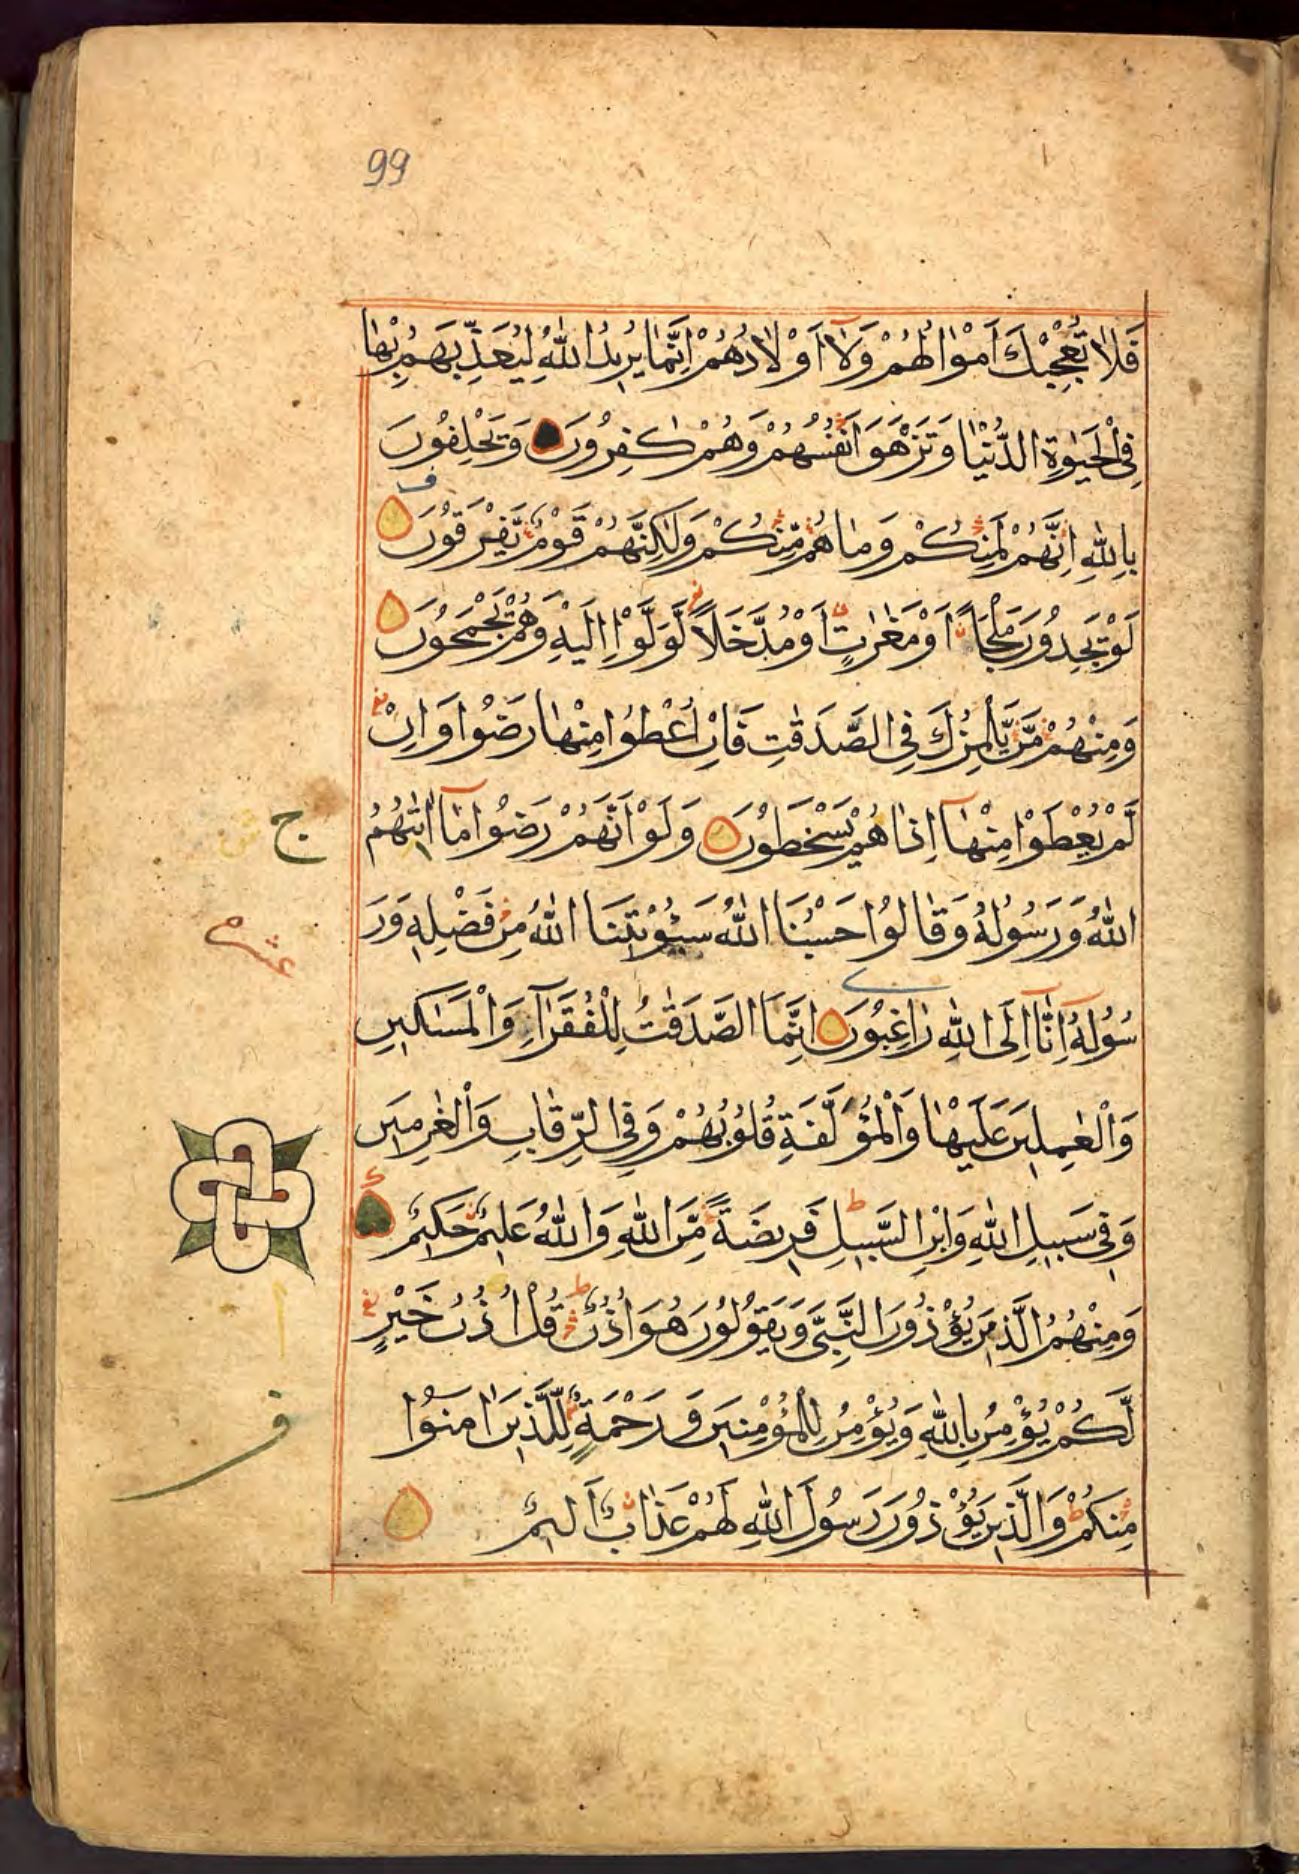 99
فَلَا تُعْجِبْكَ اَمْوَالُهُمْ وَلَآ اَوْلَادُهُمْ اِنَّمَا يُرِيدُ اللّٰهُ لِيُعَذِّبَهُمْ بِهَا
فِي الْحَيٰوةِ الدُّنْيَا وَتَزْهَقَ اَنْفُسُهُمْ وَهُمْ كٰفِرُونَ وَيَحْلِفُونَ
بِاللّٰهِ اِنَّهُمْ لَمِنْكُمْ وَمَا هُمْ مِنْكُمْ وَلٰكِنَّهُمْ قَوْمٌ يَفْرَقُونَ
لَوْ يَجِدُونَ مَلْجَاً اَوْ مَغٰرٰتٍ اَوْ مُدَّخَلًا لَوَلَّوْا اِلَيْهِ وَهُمْ يَجْمَحُونَ
وَمِنْهُمْ مَنْ يَلْمِزُكَ فِي الصَّدَقٰتِ فَاِنْ اُعْطُوا مِنْهَا رَضُوا وَاِنْ
لَمْ يُعْطَوْا مِنْهَآ اِذَا هُمْ يَسْخَطُونَ وَلَوْ اَنَّهُمْ رَضُوا مَآ اٰتٰيهُمُ
ج
اللّٰهُ وَرَسُولُهُ وَقَالُوا حَسْبُنَا اللّٰهُ سَيُؤْتِينَا اللّٰهُ مِنْ فَضْلِهِ وَرَ
عشر
سُولُهُ اِنَّآ اِلَى اللّٰهِ رَاغِبُونَ اِنَّمَا الصَّدَقٰتُ لِلْفُقَرَآءِ وَالْمَسَاكِينِ
وَالْعٰمِلِينَ عَلَيْهَا وَالْمُؤَلَّفَةِ قُلُوبُهُمْ وَفِي الرِّقَابِ وَالْغٰرِمِينَ
وَفِي سَبِيلِ اللّٰهِ وَابْنِ السَّبِيلِ فَرِيضَةً مِنَ اللّٰهِ وَاللّٰهُ عَلِيمٌ حَكِيمٌ
وَمِنْهُمُ الَّذِينَ يُؤْذُونَ النَّبِيَّ وَيَقُولُونَ هُوَ اُذُنٌ قُلْ اُذُنُ خَيْرٍ
لَكُمْ يُؤْمِنُ بِاللّٰهِ وَيُؤْمِنُ لِلْمُؤْمِنِينَ وَرَحْمَةٌ لِلَّذِينَ اٰمَنُوا
مِنْكُمْ وَالَّذِينَ يُؤْذُونَ رَسُولَ اللّٰهِ لَهُمْ عَذَابٌ اَلِيمٌ